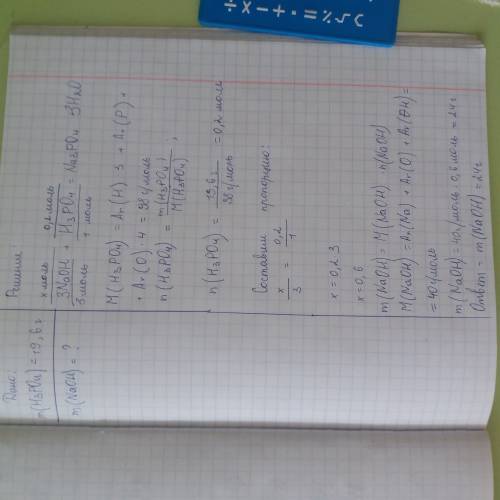 Дано:
m(H₃PO₄) = 19,6 г
m(NaOH) = ?
Решение
x моль 0,2 моль
3NaOH + H₃PO₄ = Na₃PO₄ + 3H₂O
3 моль 1 моль
M(H₃PO₄) = Ar(H) · 3 + Ar(P) +
+ Ar(O) · 4 = 98 г/моль
n(H₃PO₄) = m(H₃PO₄) / M(H₃PO₄) ;
n(H₃PO₄) = 19,6 г / 98 г/моль = 0,2 моль
Составим пропорцию:
x / 3 = 0,2 / 1
x = 0,2 · 3
x = 0,6
m(NaOH) = M(NaOH) · n(NaOH)
M(NaOH) = Ar(Na) + Ar(O) + Ar(H) =
= 40 г/моль
m(NaOH) = 40 г/моль · 0,6 моль = 24 г
Ответ - m(NaOH) = 24 г
÷ × − + · = %